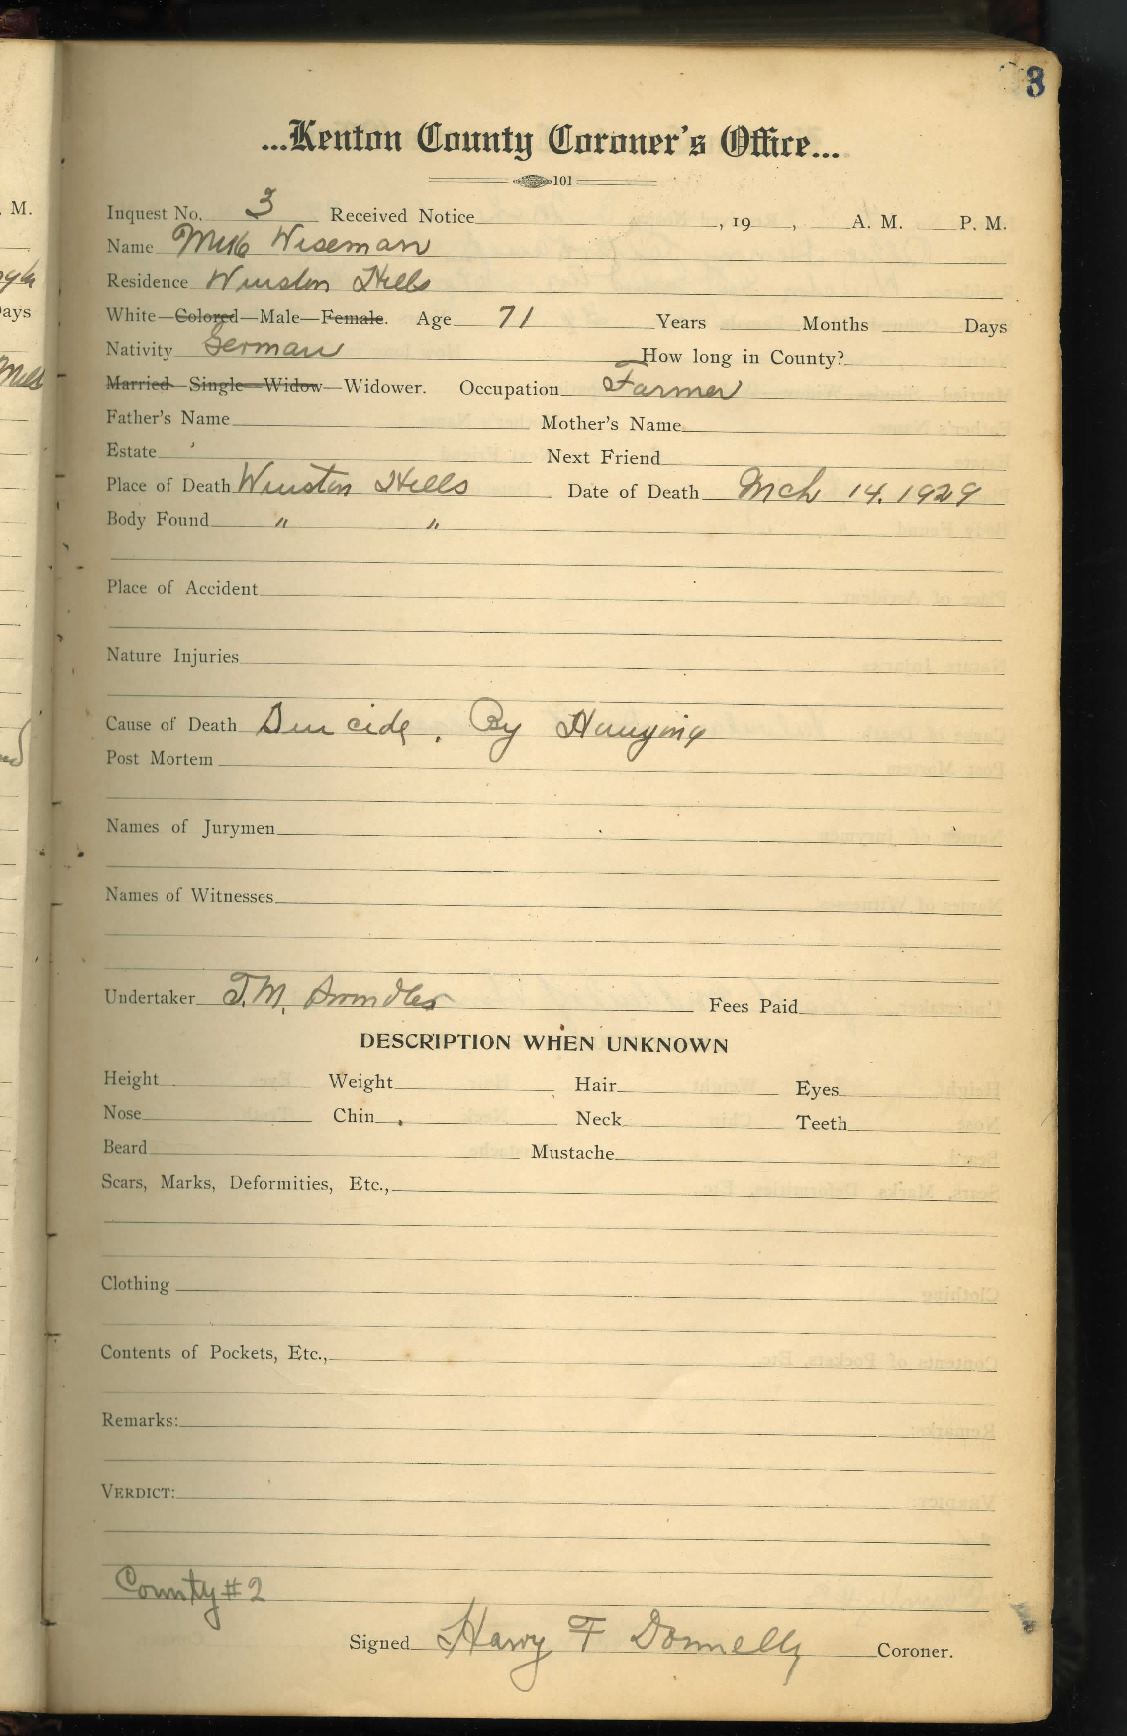 3
...Kenton County Coroner's Office...
101
Inquest No. 3 Received Notice , 19 , A. M. P. M.
Name Wiseman
Residence Winston Hills
White—Colored—Male—Female. Age 71 Years Months Days
Nativity German How long in County?
Married—Single—Widow—Widower. Occupation Farmer
Father's Name Mother's Name
Estate Next Friend
Place of Death Winston Hills Date of Death Mch 14. 1929
Body Found " "
Place of Accident
Nature Injuries
Cause of Death Suicide. By Hanging
Post Mortem
Names of Jurymen
Names of Witnesses
Undertaker Fees Paid
DESCRIPTION WHEN UNKNOWN
Height Weight Hair Eyes
Nose Chin Neck Teeth
Beard Mustache
Scars, Marks, Deformities, Etc.,
Clothing
Contents of Pockets, Etc.,
Remarks:
VERDICT:
County #2
Signed Harry F Donnelly Coroner.